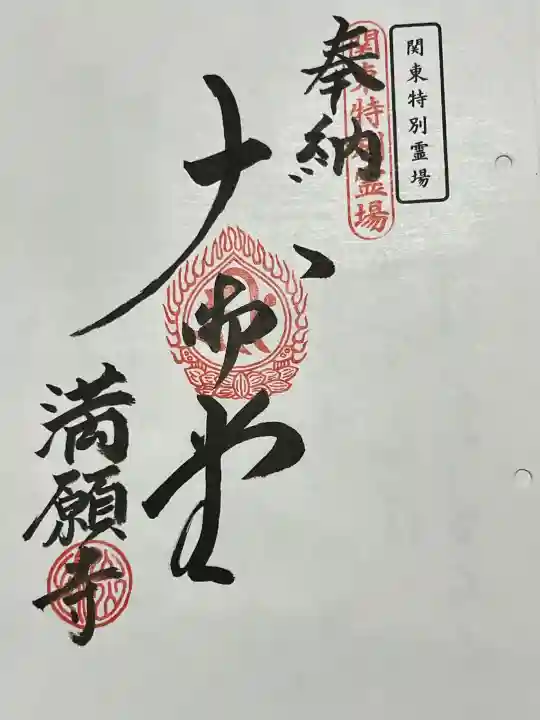 関東特別霊場
関東特別霊場
奉納
大師堂
満願寺